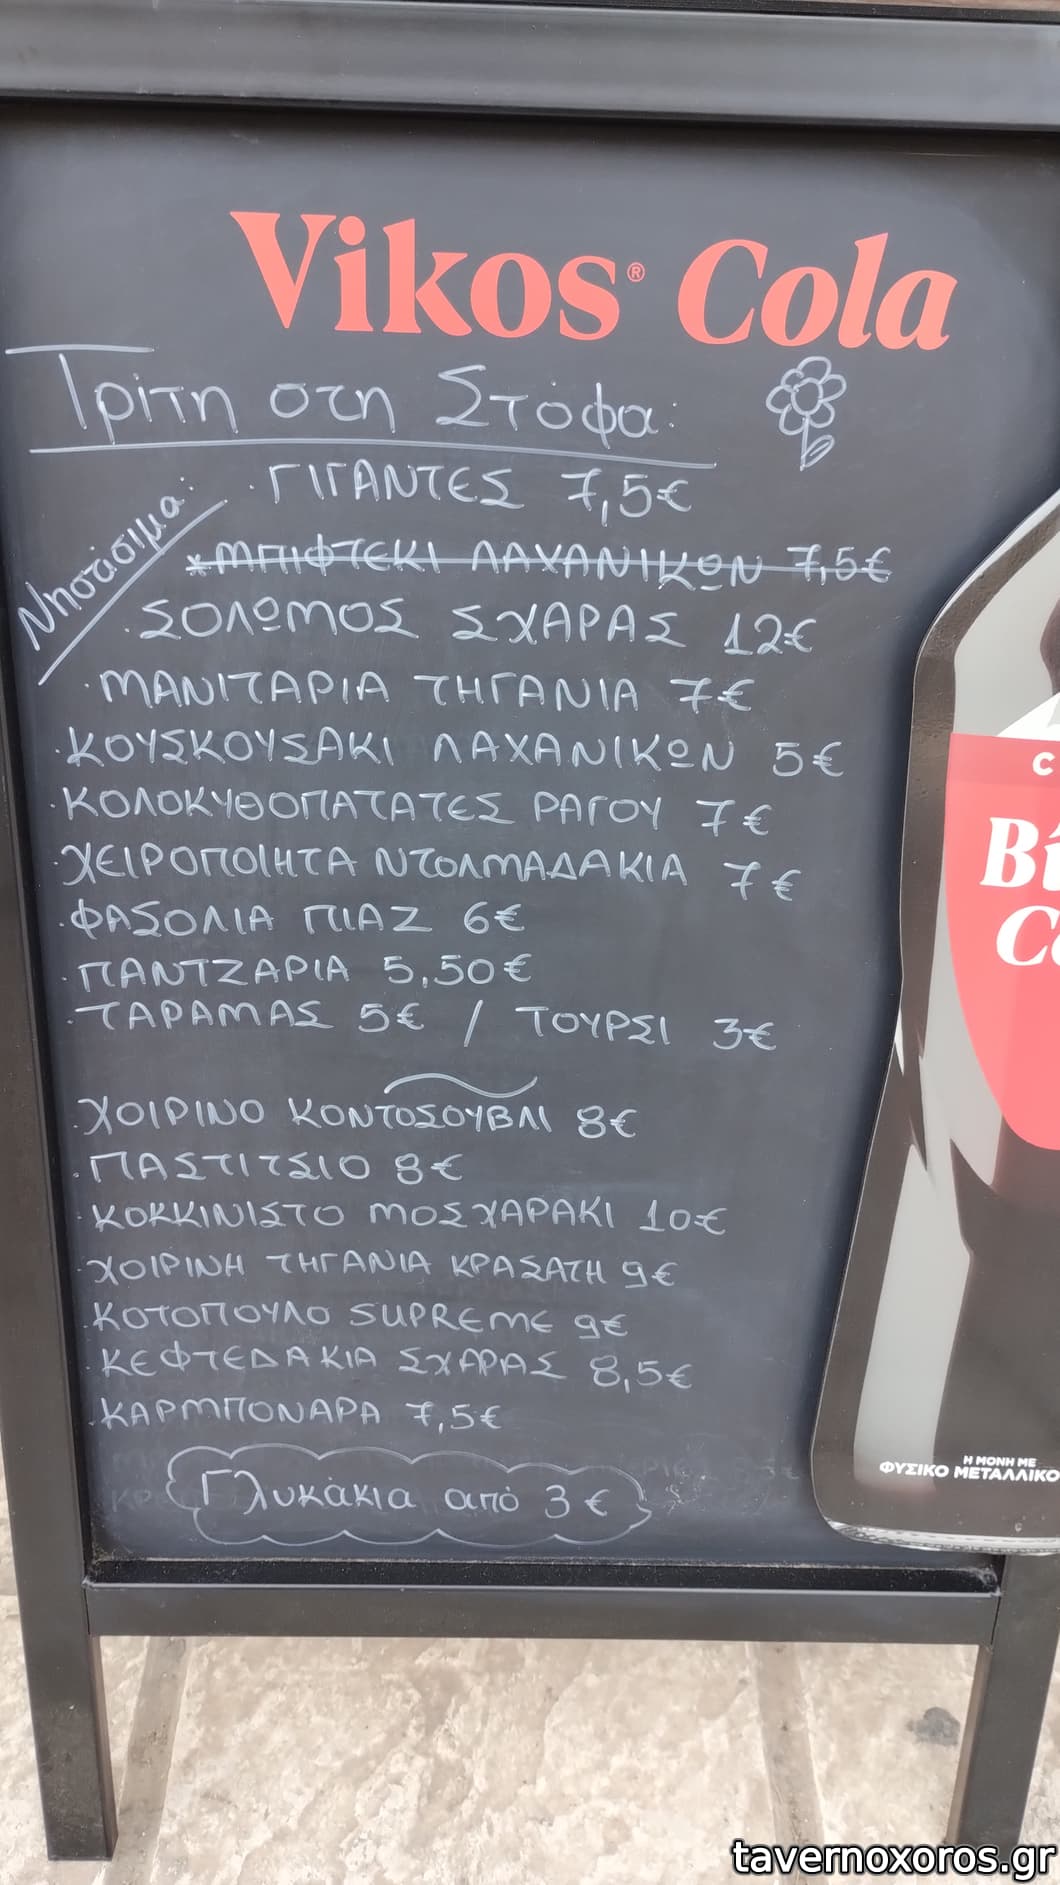 Vikos® Cola
Τρίτη στη Στόφα:
Νηστίσιμα:
· ΓΙΓΑΝΤΕΣ 7,5€
*ΜΠΙΦΤΕΚΙ ΛΑΧΑΝΙΚΩΝ 7,5€
· ΣΟΛΩΜΟΣ ΣΧΑΡΑΣ 12€
· ΜΑΝΙΤΑΡΙΑ ΤΗΓΑΝΙΑ 7€
· ΚΟΥΣΚΟΥΣΑΚΙ ΛΑΧΑΝΙΚΩΝ 5€
· ΚΟΛΟΚΥΘΟΠΑΤΑΤΕΣ ΡΑΓΟΥ 7€
· ΧΕΙΡΟΠΟΙΗΤΑ ΝΤΟΛΜΑΔΑΚΙΑ 7€
· ΦΑΣΟΛΙΑ ΠΙΑΖ 6€
· ΠΑΝΤΖΑΡΙΑ 5,50€
· ΤΑΡΑΜΑΣ 5€ / ΤΟΥΡΣΙ 3€
· ΧΟΙΡΙΝΟ ΚΟΝΤΟΣΟΥΒΛΙ 8€
· ΠΑΣΤΙΤΣΙΟ 8€
· ΚΟΚΚΙΝΙΣΤΟ ΜΟΣΧΑΡΑΚΙ 10€
· ΧΟΙΡΙΝΗ ΤΗΓΑΝΙΑ ΚΡΑΣΑΤΗ 9€
· ΚΟΤΟΠΟΥΛΟ SUPREME 9€
· ΚΕΦΤΕΔΑΚΙΑ ΣΧΑΡΑΣ 8,5€
· ΚΑΡΜΠΟΝΑΡΑ 7,5€
Γλυκάκια από 3€
Η ΜΟΝΗ ΜΕ
ΦΥΣΙΚΟ ΜΕΤΑΛΛΙΚΟ
tavernoxoros.gr